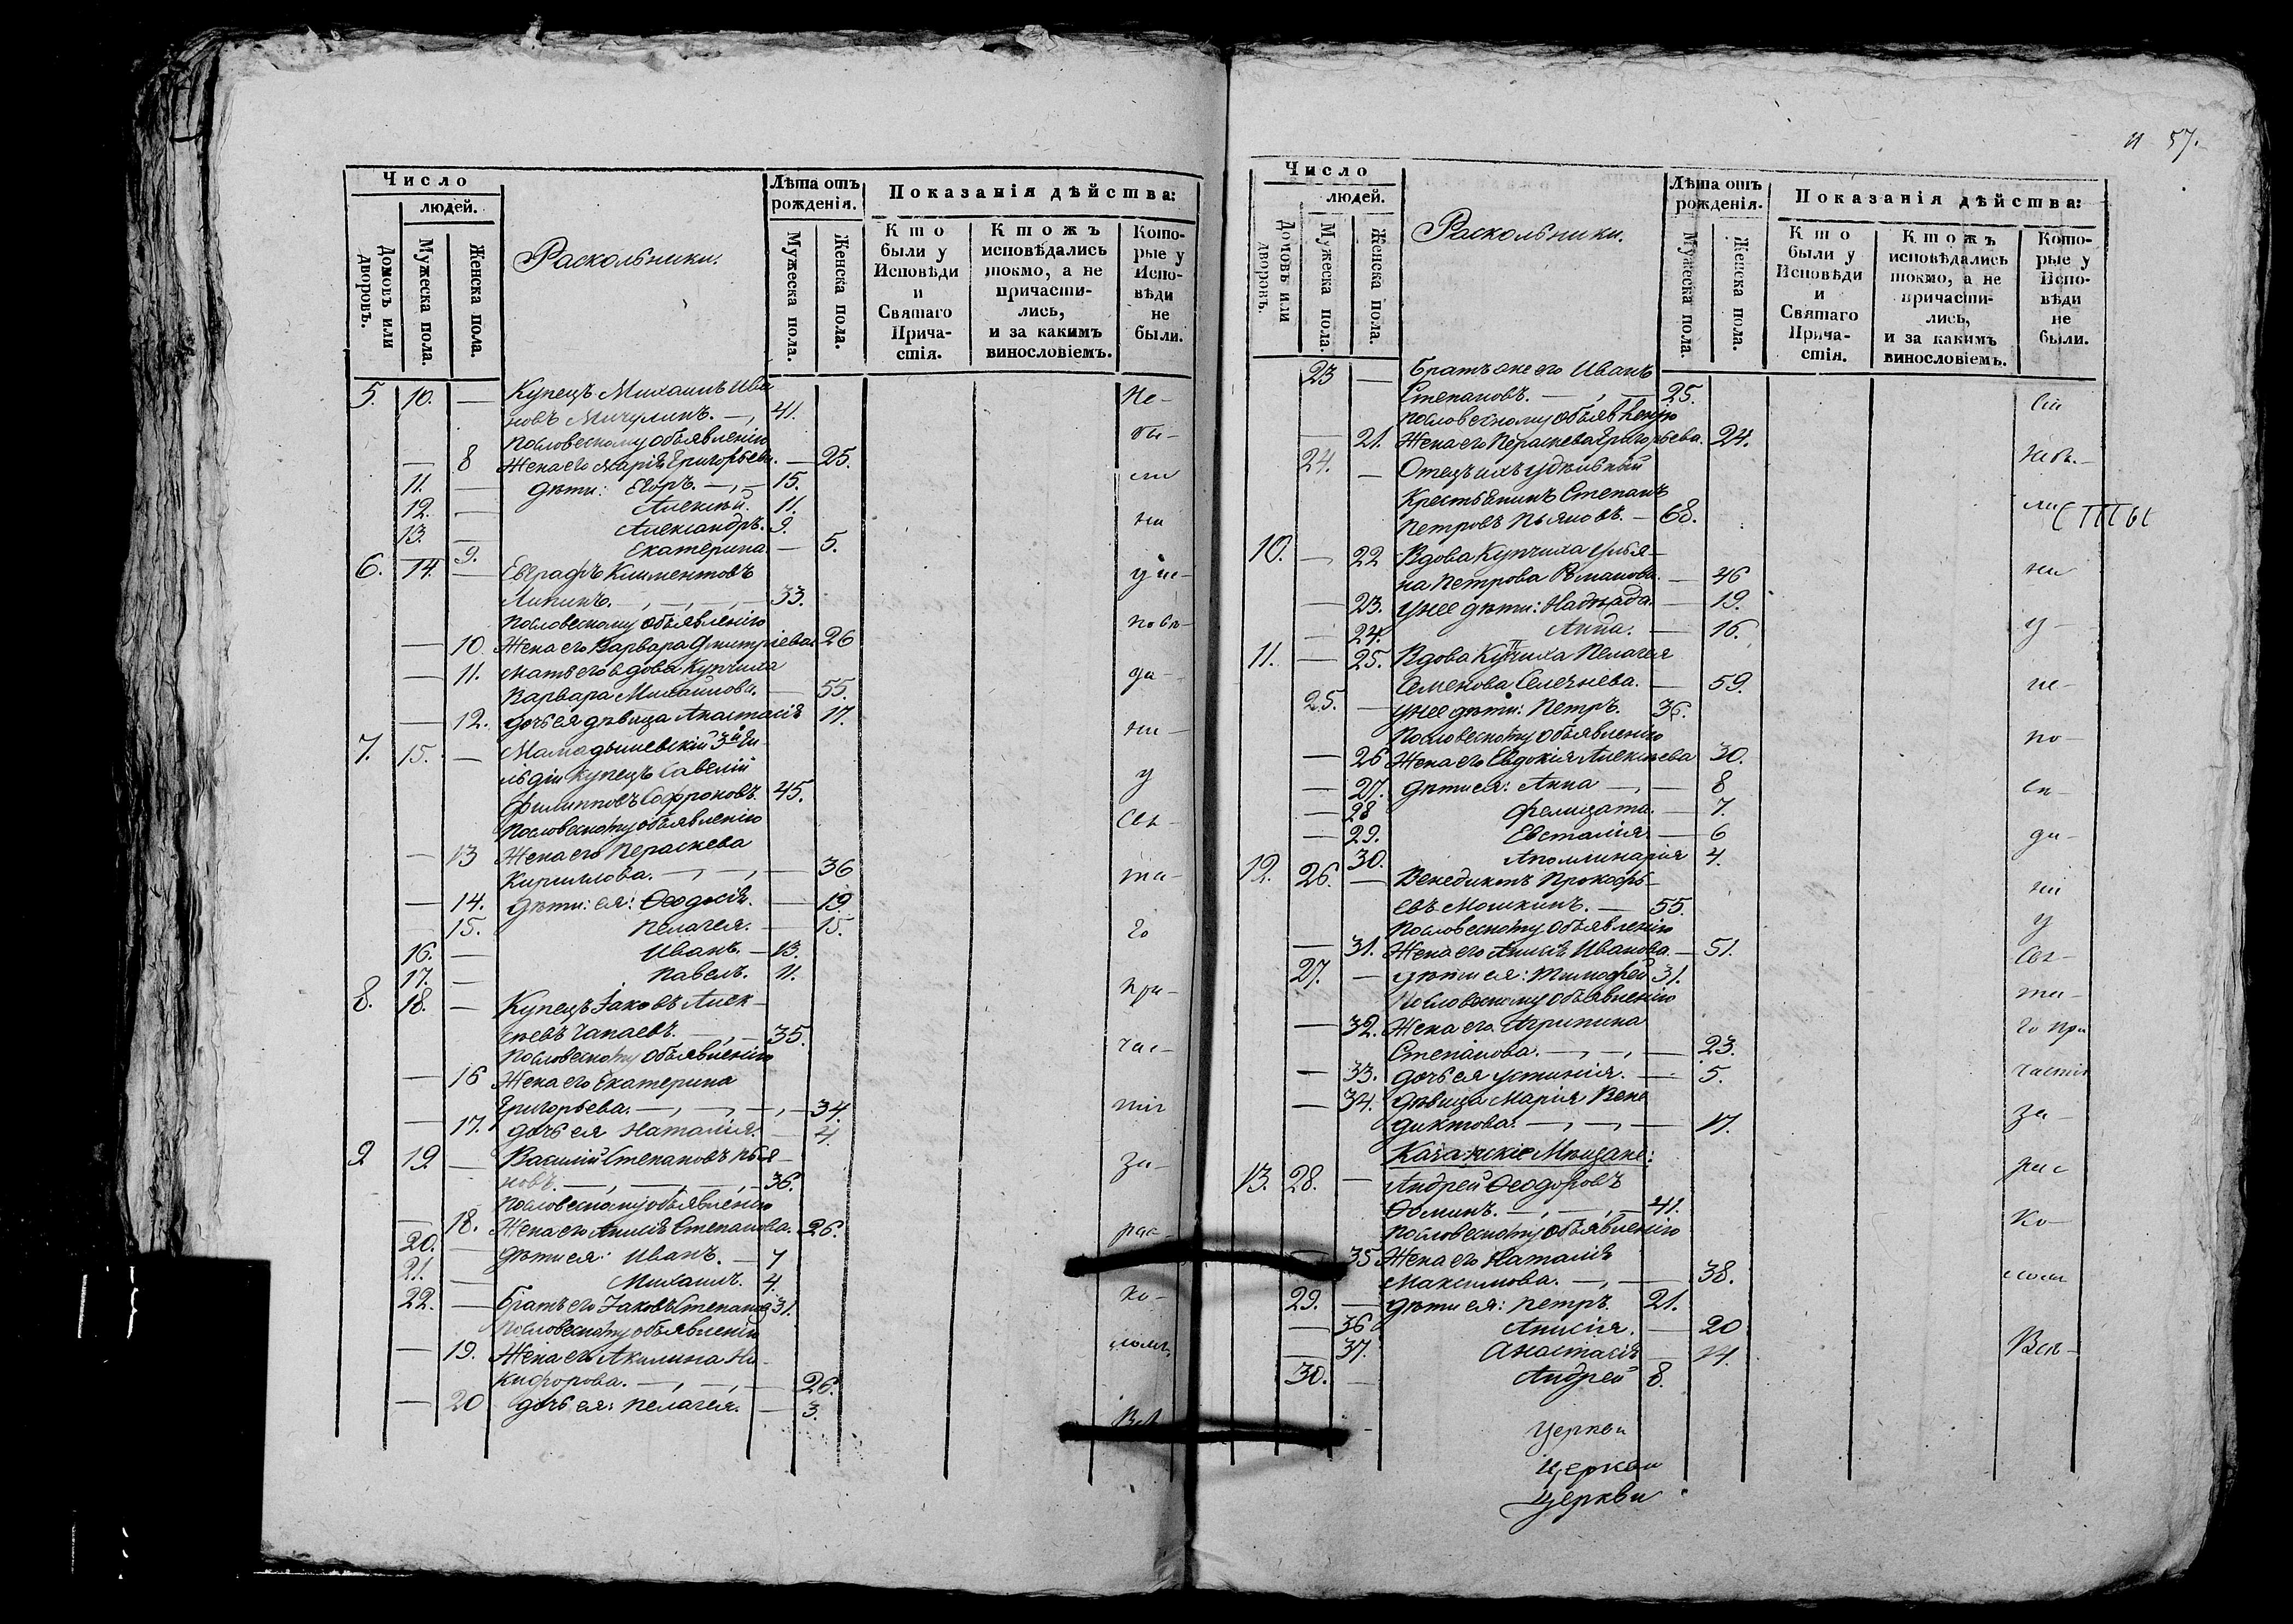 Число
людей.
Домовъ или дворовъ.
Мужеска пола.
Женска пола.
Раскольники.
Лѣта отъ рожденія.
Мужеска пола.
Женска пола.
Показанія дѣйства:
Кто были у Исповѣди и Святаго Причастія.
Ктожъ исповѣдались токмо, а не причастились, и за какимъ винословіемъ.
Которые у Исповѣди не были.
5. 10. — Купецъ Михаилъ Ива Не-
новъ Мичулинъ. — 41.
По словесному объявленію бы-
— 8 Жена его Марія Григорьева. — 25.
11. — дѣти: Егоръ. — 15. ли
12. — Алексѣй. 11.
13. — Александръ. 9. ни
— 9. Екатерина. — 5.
6. 14. — Евграфъ Климентовъ у ис-
Липинъ. — 33.
По словесному объявленію повѣ-
— 10. Жена его Варвара Дмитріева 26
— 11. Мать его вдова купчиха ди-
Варвара Михайлова. — 55.
— 12. дочь ея дѣвица Анастасія 17.
7. 15. — Мамадышевскій 3й Ги- ни
льдіи купецъ Савелій у
Филипповъ Софроновъ. 45.
По словесному объявленію Свя-
— 13 Жена его Пераскева
Кириллова. — 36 та-
— 14. дѣти: ея: Ѳеодосія. — 19.
15. Пелагея. — 15. го
16. — Иванъ. — 13.
17. — Павелъ. 11.
8. 18. — Купецъ Іаковъ Алек- при-
сѣевъ Чапаевъ. — 35.
По словесному объявленію час-
— 16 Жена его Екатерина
Григорьева. — 34. тія
— 17. дочь ея Наталія. — 4.
9 19 — Василій Степановъ Пья- за-
новъ. — 36.
По словесному объявленію
— 18. Жена его Анисія Степанова. 26. рас-
20. — дѣти ея: Иванъ. — 7
21. — Михаилъ. 4.
22. — Братъ его Іаковъ Степановъ 31. ко-
По словесному объявленію
— 19. Жена его Акилина Ни- ломъ.
кифорова. — 26.
— 20 дочь ея: Пелагея. — 3.
Всѣ
57.
Число
людей.
Домовъ или дворовъ.
Мужеска пола.
Женска пола.
Раскольники.
Лѣта отъ рожденія.
Мужеска пола.
Женска пола.
Показанія дѣйства:
Кто были у Исповѣди и Святаго Причастія.
Ктожъ исповѣдались токмо, а не причастились, и за какимъ винословіемъ.
Которые у Исповѣди не были.
23 — Братъ же его Иванъ
Степановъ. — 25. сіи
По словесному объявленію
— 21. Жена его Пераскева Григорьева. 24.
24. — Отецъ ихъ удѣльный
Крестьянинъ Степанъ
Петровъ Пьяновъ. — 68. ли
10. — 22 Вдова Купчиха Улья-
на Петрова Романова. — 46 ни
— 23. У нее дѣти: Надежда. — 19.
— 24. Анна. — 16. у
11. — 25. Вдова Купчиха Пелагея
Семенова Селезнева. — 59. ис-
25. — У нее дѣти: Петръ. 36.
По словесному объявленію по-
— 26 Жена его Евдокія Алексѣева 30.
— 27. дѣти ея: Анна — 8
— 28 Фелицата. — 7.
— 29. Евсталія. — 6 ди-
30. Аполлинарія 4.
12. 26. — Венедиктъ Прокофь- ни
евъ Мошкинъ. — 55.
По словесному объявленію у
— 31. Жена его Анисія Иванова. — 51.
27. — дѣти ея: Тимофей 31. Свя-
По словесному объявленію та-
— 32. Жена его Агрипина го При
Степанова. — 23.
— 33. дочь ея Устинія. — 5. частія
— 34. дѣвица Марія Вене
диктова. — 17. за-
Казанскіе Мѣщане:
13. 28. — Андрей Ѳеодоровъ рас
Ѳоминъ. — 41.
По словесному объявленію ко-
— 35 Жена его Наталія
Максимова. — 38. ломъ
29. — дѣти ея: Петръ. 21.
— 36 Анисія. — 20
— 37. Анастасія 14. Всѣ-
30. — Андрей 8.
Церкви
Церкви
Церкви